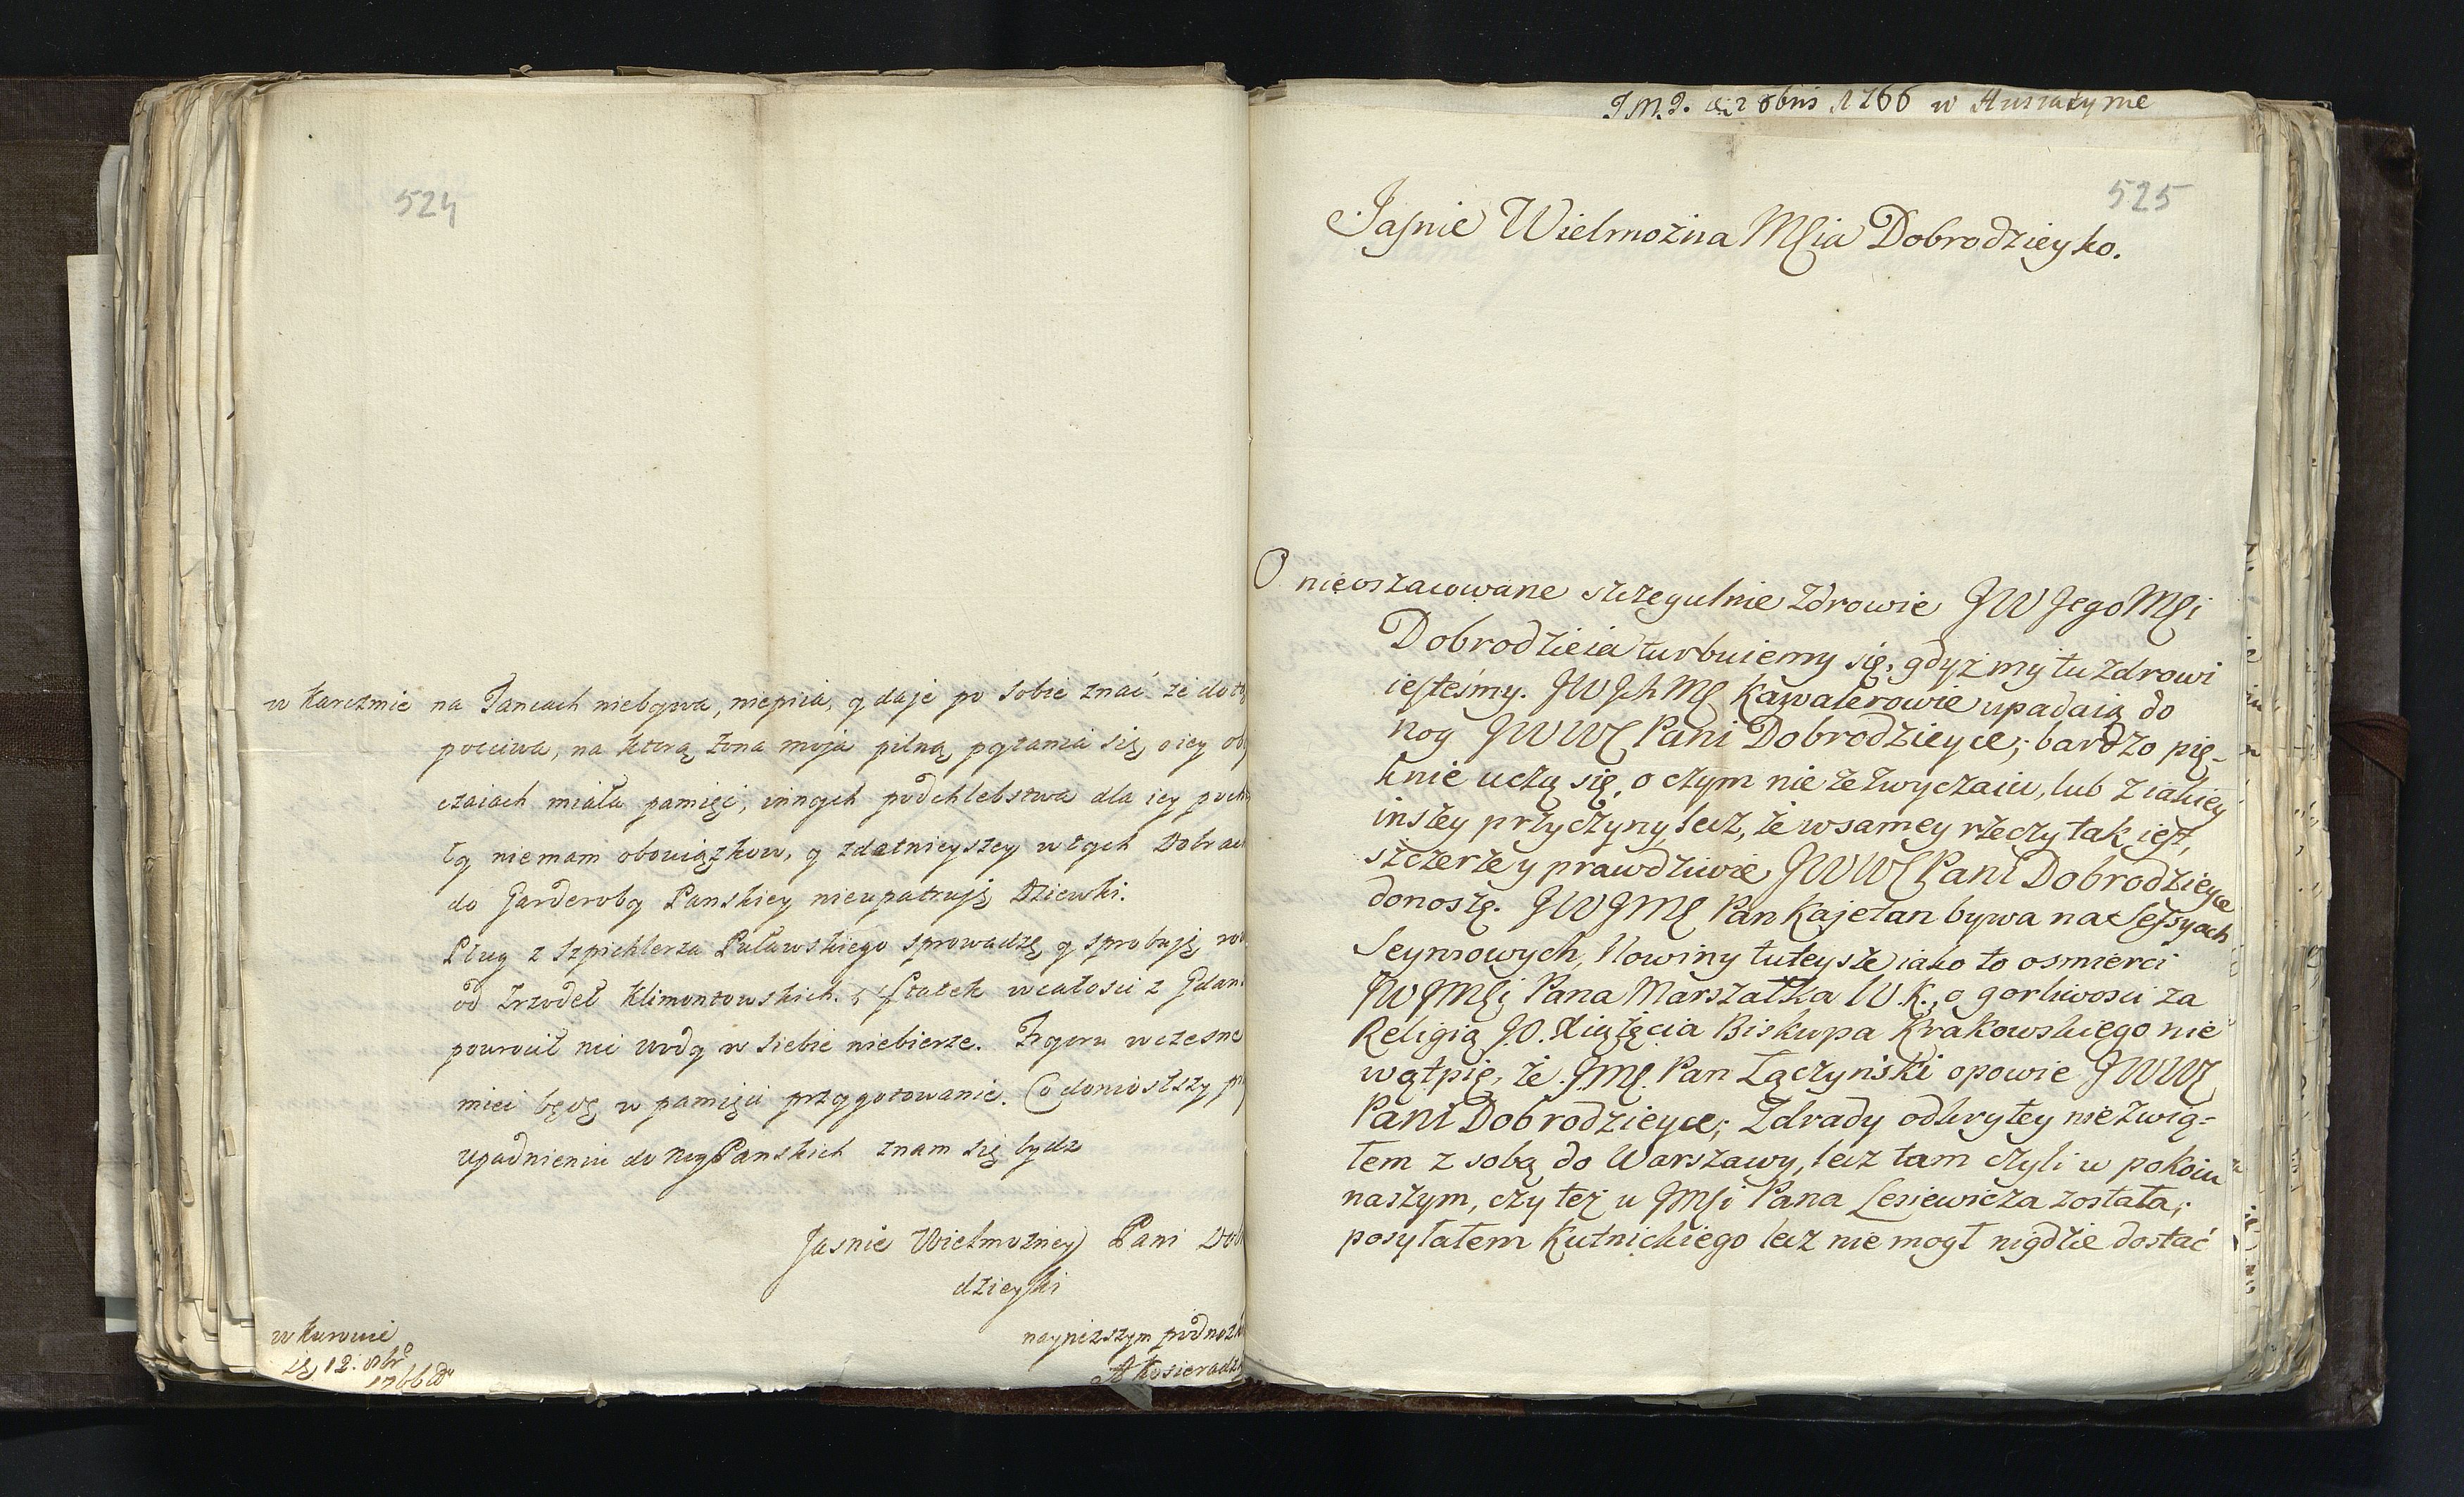 524
w Karczmie na Tancach niebywa, niepiia, y daje po sobie znać że
pocciwa, na ktorą żona moja pilną pytania się o iey
czaiach miała pamięć, innych podchlebstwa dla iey
ty niemam obowiązkow, y zdatnieyszey w tych Dobrach
do Garderoby Panskiey nieupatruię Dziewki.
Pług z Szpichlerza Puławskiego sprowadzę y sprobuję
od Zrzodeł Klimontowskich. Statek wcałosci z
powrocił nic wody w siebie niebierze. wczesne
mieć będę w pamięci przygotowanie. Co doniosłszy
upadnieniu do nog Panskich znam się bydz
Jasnie Wielmożney Pani
dzieyki
nayniższym
w Kurowie
12.
1766
525
Jaśnie Wielmożna Mśia Dobrodzieyko.
O nieoszacowane szczegulnie Zdrowie JW Jego Mśi
Dobrodzieia turbuiemy się, gdyż my tu zdrowi
iesteśmy. JW Jch Mś Kawalerowie upadaią do
nog JWWś Pani Dobrodzieyce; bardzo pię-
knie uczą się, o czym nie ze zwyczaiu, lub z iakiey
inszey przyczyny lecz, że wsamey rzeczy tak iest,
szczerze y prawdziwie JWWś Pani Dobrodzieyce
donoszę. JWJMś Pan Kajetan bywa na Sessyach
Seymowych, Nowiny tuteysze iako to osmierci
JWJMśi Pana Marszałka W.K., o gorliwosci za
Religią J.O. Xiążęcia Biskupa Krakowskiego nie
wątpię, że JMś. Pan Łączyński opowie JWWś
Pani Dobrodzieyce; Zdrady odkrytey nie zwią-
łem z sobą do Warszawy, lecz tam czyli w pokoiu
naszym, czy też u JMśi Pana Lesiewicza została;
posyłałem Kutnickiego lecz nie mogł nigdzie dostać